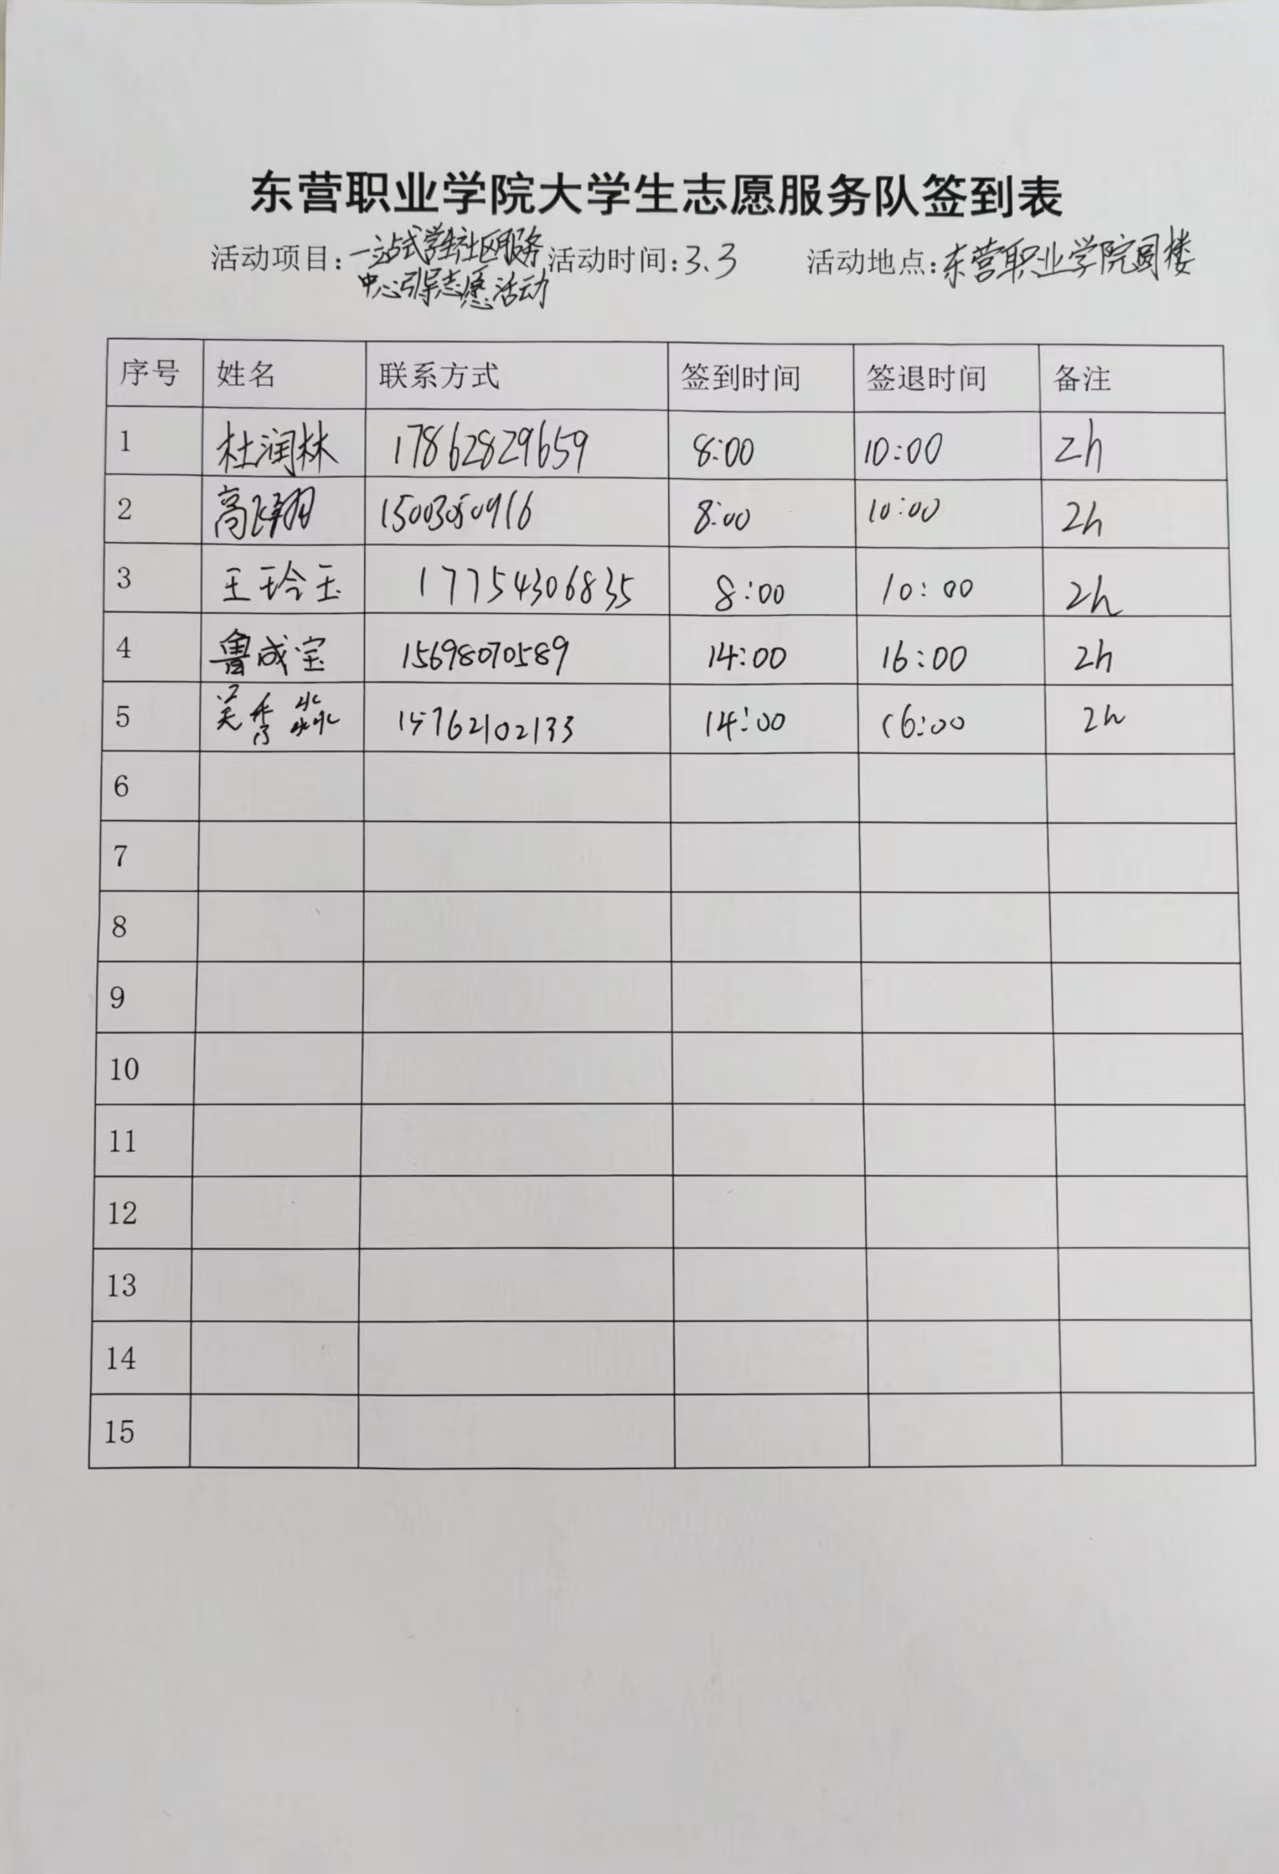 东营职业学院大学生志愿服务队签到表
活动项目：一站式学生社区服务中心引导志愿活动 活动时间：3.3 活动地点：东营职业学院图楼
序号 姓名 联系方式 签到时间 签退时间 备注
1 杜润林 17862829659 8:00 10:00 2h
2 高 翔 15003050916 8:00 10:00 2h
3 王玲玉 17754306835 8:00 10:00 2h
4 鲁成宝 15698070589 14:00 16:00 2h
5 关秀淼 15762102133 14:00 16:00 2h
6
7
8
9
10
11
12
13
14
15